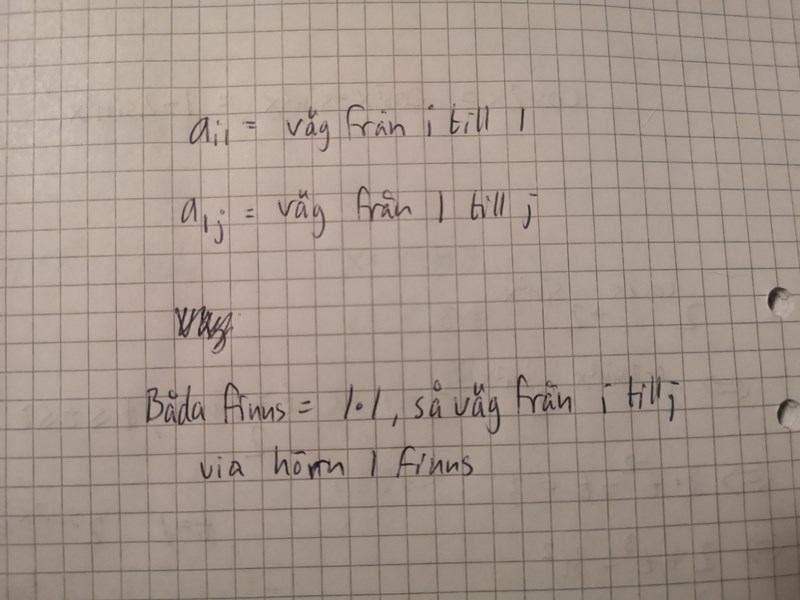 a_i1 = väg från i till 1
a_1j = väg från 1 till j
Båda finns = 1·1, så väg från i till j
via hörn 1 finns